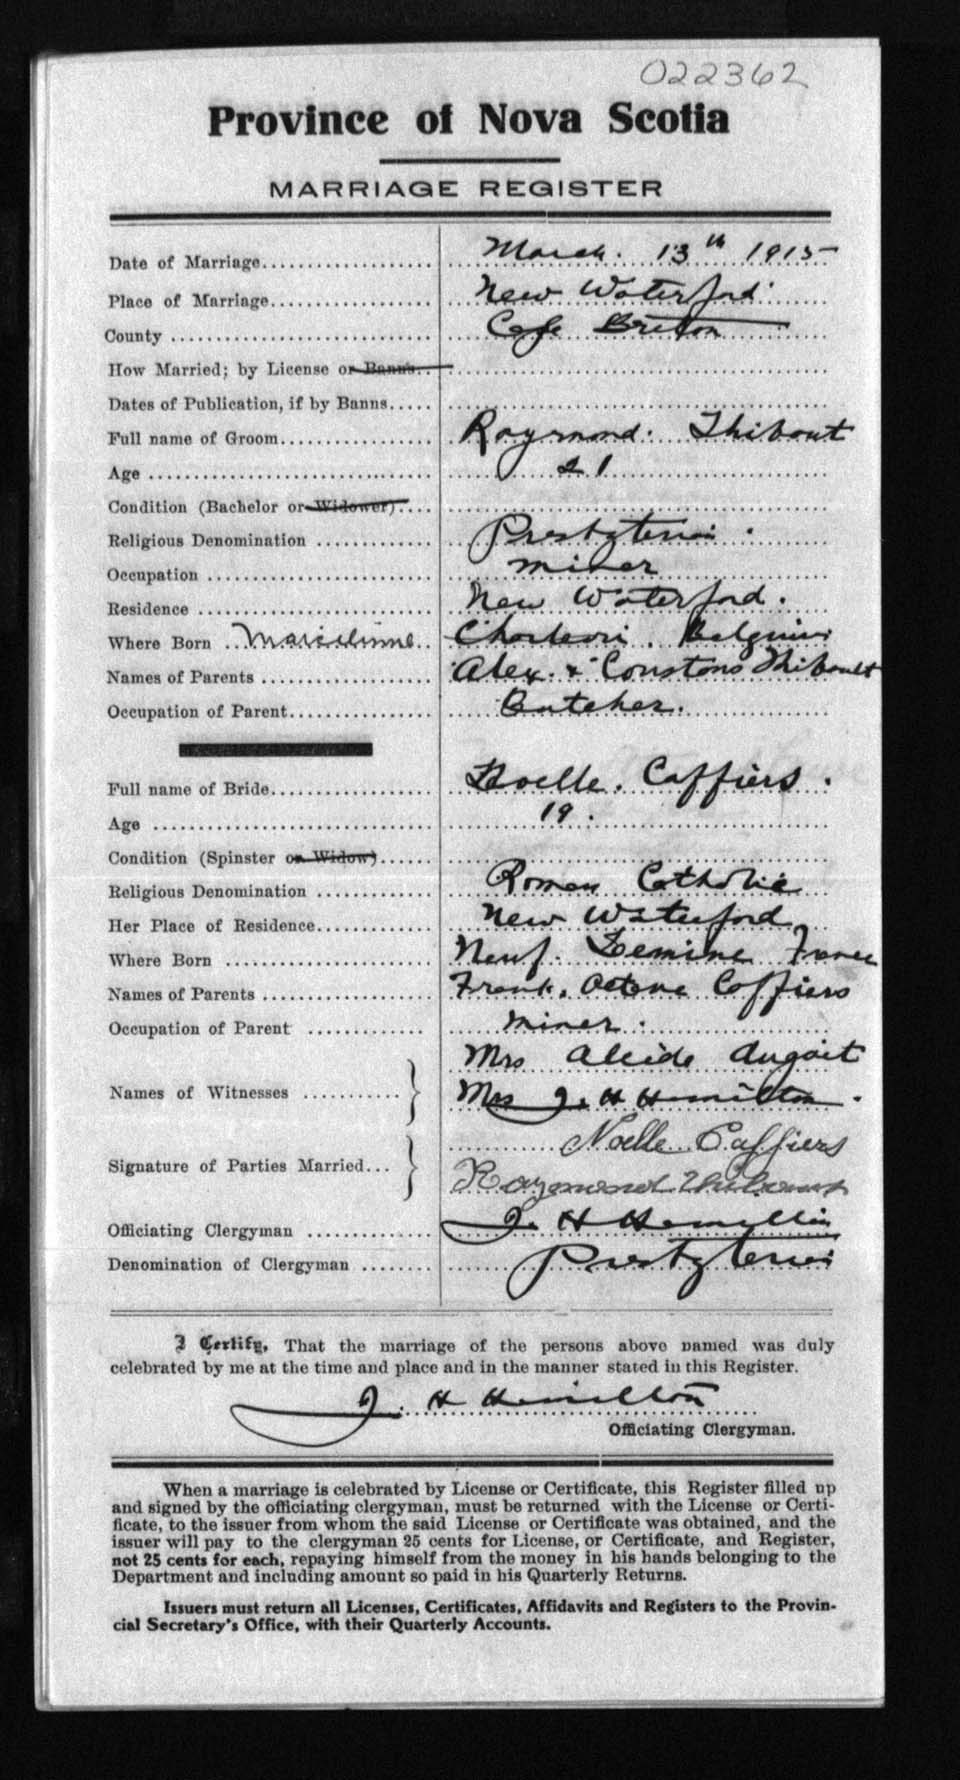 022362
Province of Nova Scotia
MARRIAGE REGISTER
Date of Marriage March. 13th 1915
Place of Marriage New Waterford
County Cape Breton
How Married; by License or Banns
Dates of Publication, if by Banns
Full name of Groom Raymond. Thibaut
Age 21
Condition (Bachelor or Widower)
Religious Denomination Presbyterian.
Occupation miner
Residence New Waterford.
Where Born Belgium
Names of Parents Alex. & Constans Thibault
Occupation of Parent Butcher.
Full name of Bride Noelle. Caffiers.
Age 19.
Condition (Spinster or Widow)
Religious Denomination Roman Catholic
Her Place of Residence New Waterford
Where Born Neuf. France
Names of Parents Frank. Octave Caffiers
Occupation of Parent miner.
Names of Witnesses Mrs Alcide
Mrs J. H Hamilton.
Noelle Caffiers
Signature of Parties Married Raymond Thibaut
Officiating Clergyman J. H Hamilton
Denomination of Clergyman Presbyterian
I Certify, That the marriage of the persons above named was duly
celebrated by me at the time and place and in the manner stated in this Register.
J. H Hamilton
Officiating Clergyman.
When a marriage is celebrated by License or Certificate, this Register filled up
and signed by the officiating clergyman, must be returned with the License or Certi-
ficate, to the issuer from whom the said License or Certificate was obtained, and the
issuer will pay to the clergyman 25 cents for License, or Certificate, and Register,
not 25 cents for each, repaying himself from the money in his hands belonging to the
Department and including amount so paid in his Quarterly Returns.
Issuers must return all Licenses, Certificates, Affidavits and Registers to the Provin-
cial Secretary's Office, with their Quarterly Accounts.